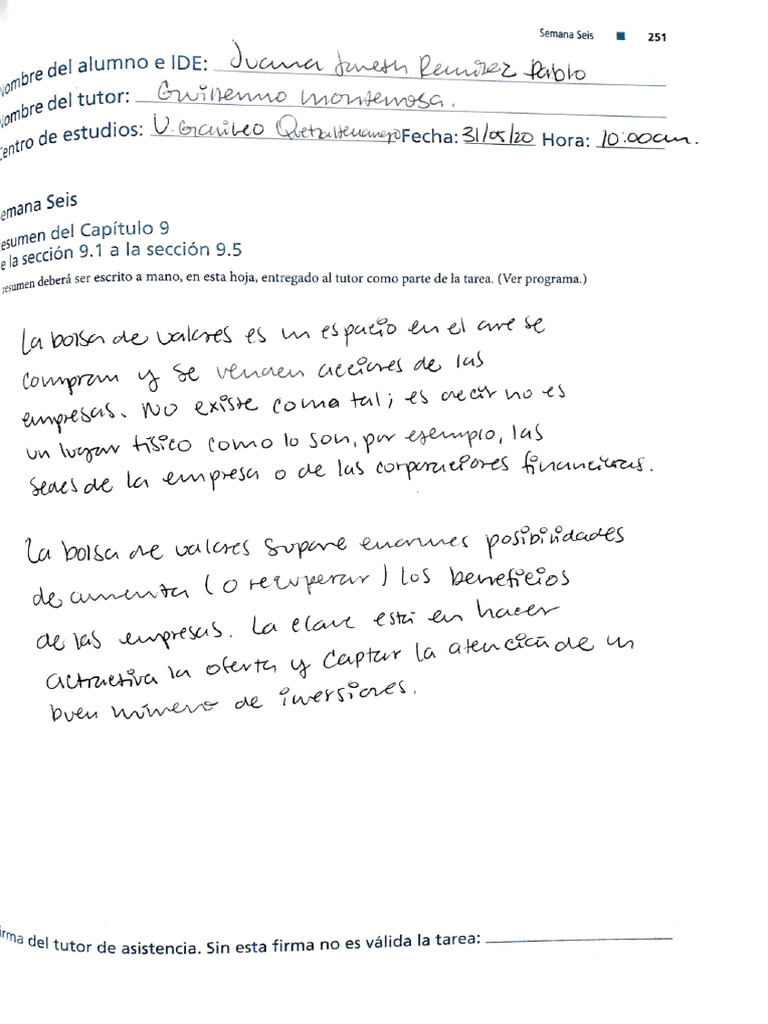 Semana Seis ■ 251
Nombre del alumno e IDE: Juana Janeth Ramirez Pablo
Nombre del tutor: Guillermo Monterrosa.
Centro de estudios: U. Galileo Quetzaltenango Fecha: 31/05/20 Hora: 10:00am.
Semana Seis
Resumen del Capítulo 9
De la sección 9.1 a la sección 9.5
resumen deberá ser escrito a mano, en esta hoja, entregado al tutor como parte de la tarea. (Ver programa.)
La bolsa de valores es un espacio en el que se
compran y se venden acciones de las
empresas. No existe como tal; es decir no es
un lugar físico como lo son, por ejemplo, las
sedes de la empresa o de las corporaciones financieras.
La bolsa de valores supone enormes posibilidades
de aumentar (o recuperar) los beneficios
de las empresas. La clave está en hacer
atractiva la oferta y captar la atención de un
buen número de inversiones.
Firma del tutor de asistencia. Sin esta firma no es válida la tarea: